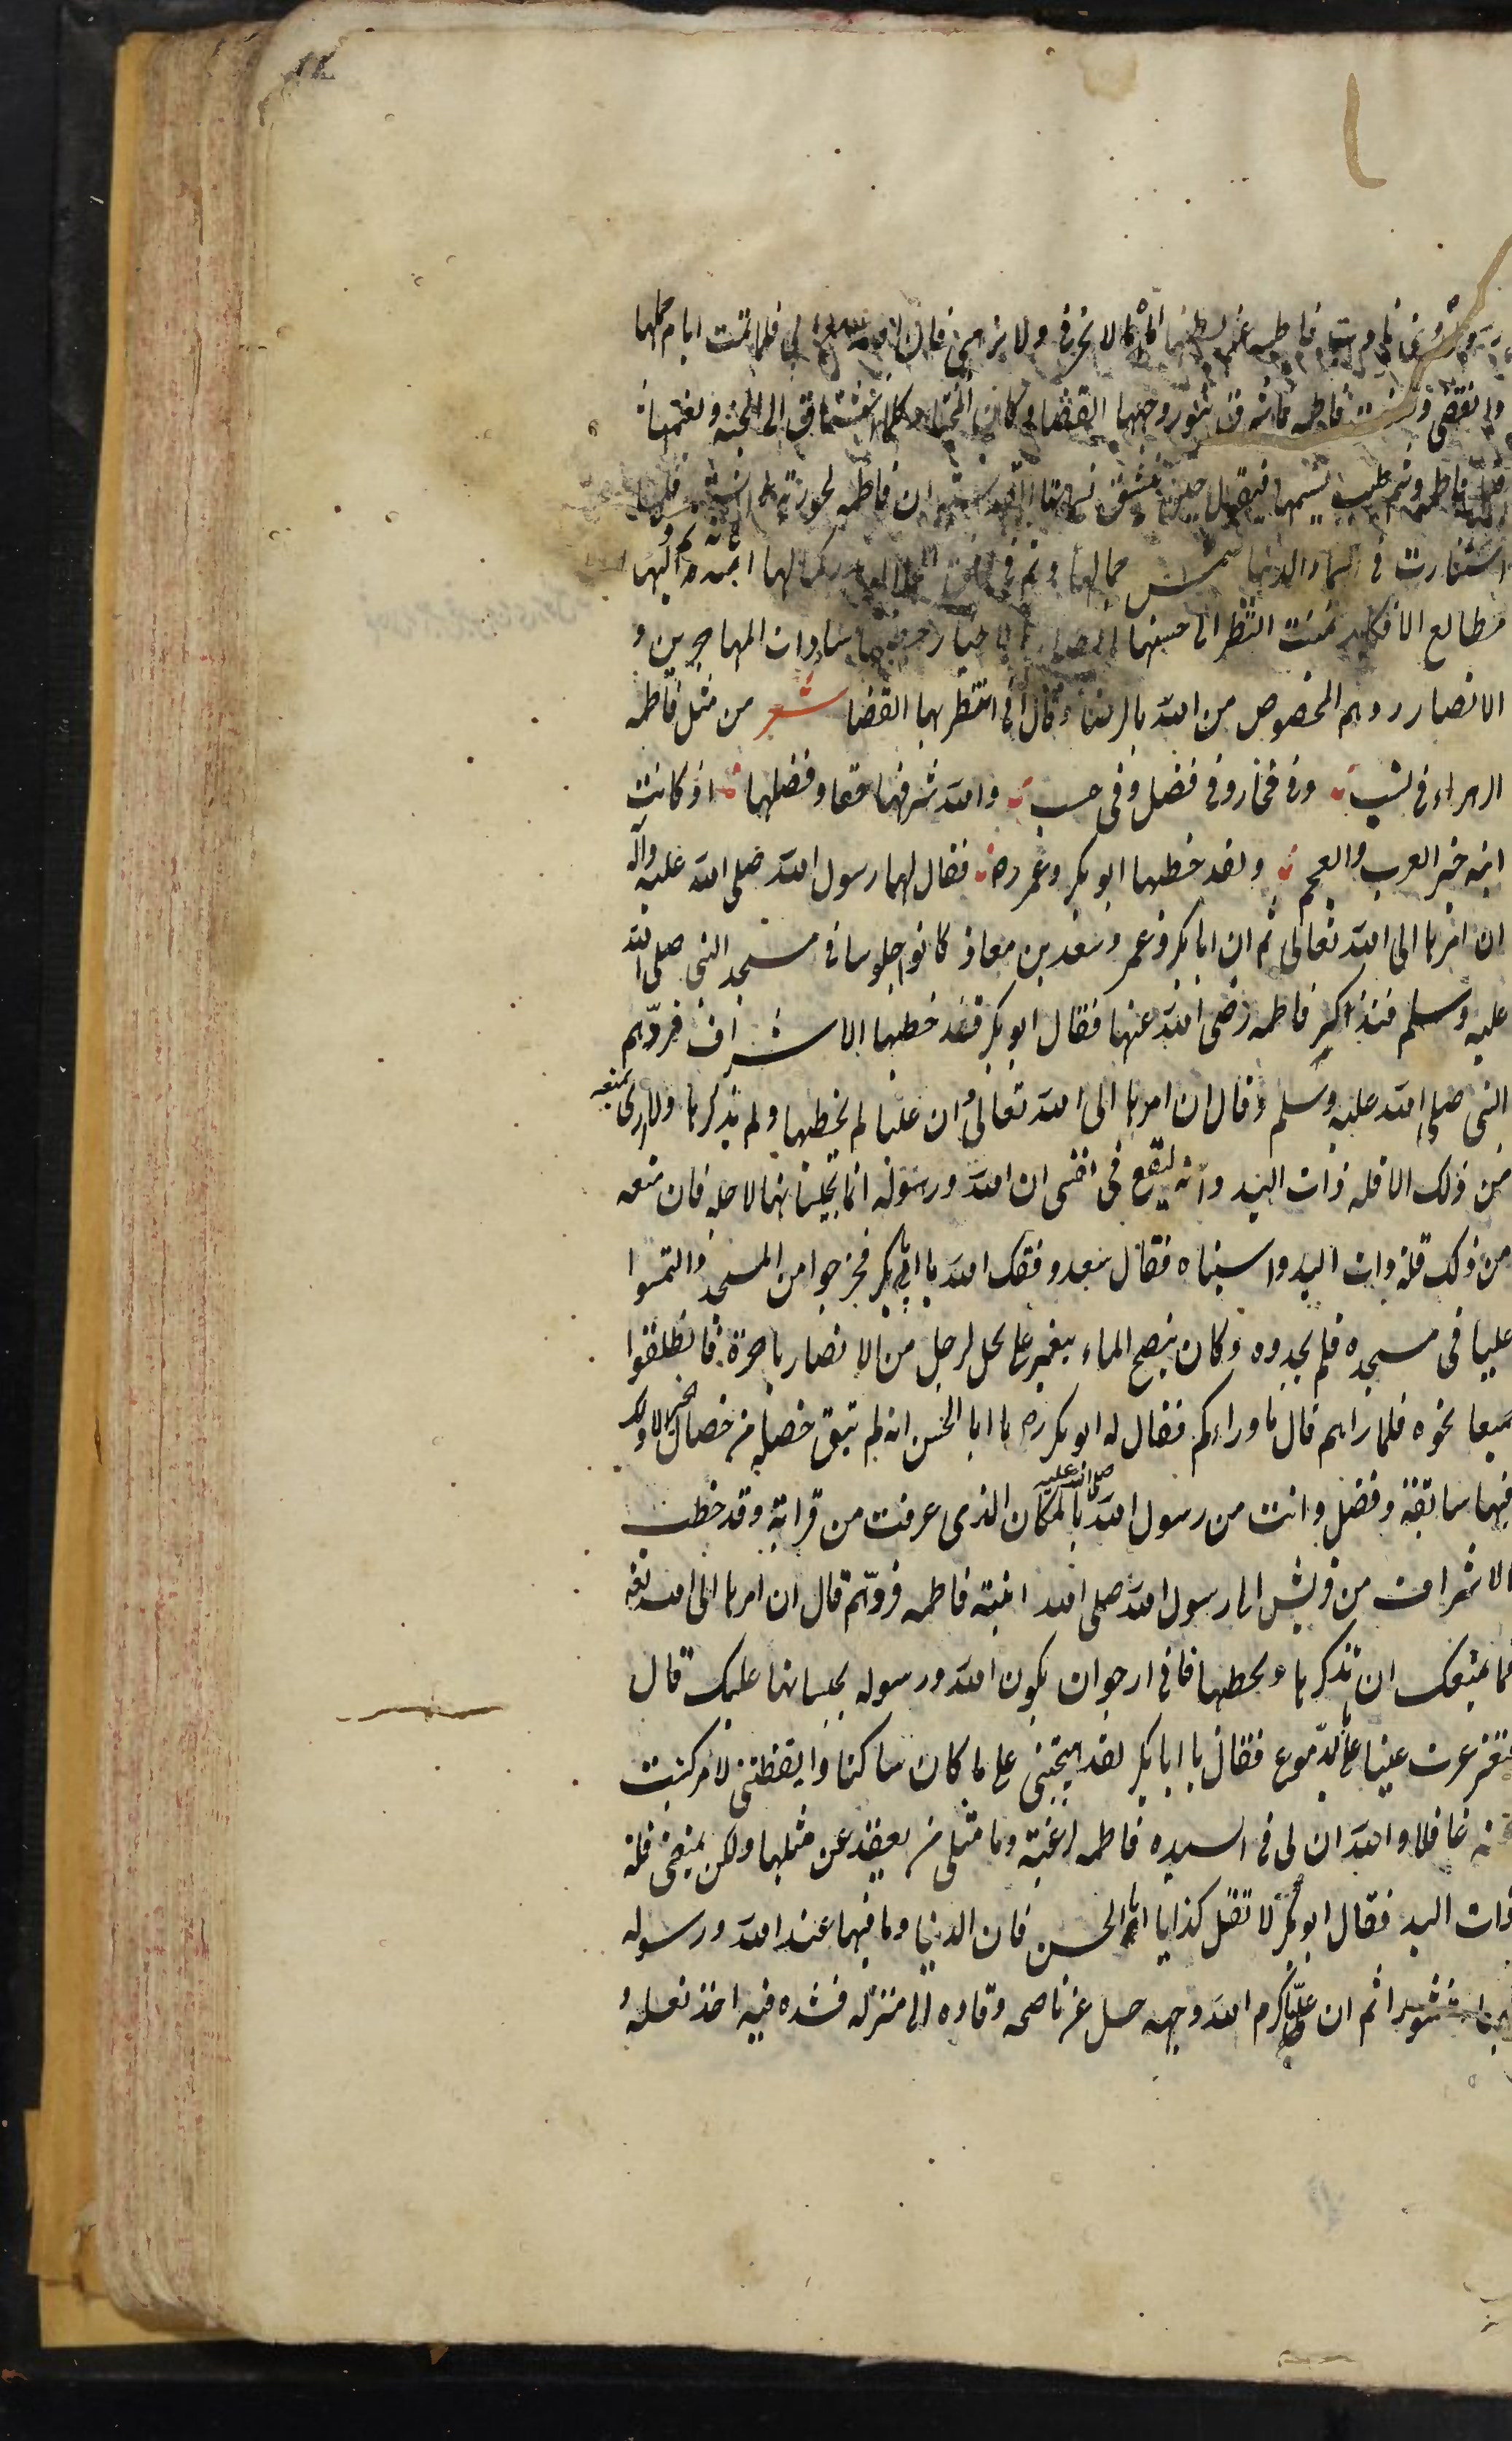 فاطمه لا تحزنى ولا ترهبى فان الله لى فلما تمت ايام حملها
وانقضى وضعت فاطمه فاشرق بنور وجهها الفضا وكان المختار كلما اشتاق الى الجنه ونعيمها
قبل فاطمه وشم طيب نسيمها فيقول حين ينشق ان فاطمه لحوريه انسيه فلما
استنارت فى السماء الدنيا شمس جمالها وتم فى
مطالع الافكار تمنت النظر الى حسنها خطبها سادات المهاجرين و
الانصار ردهم المخصوص من الله بالرضا وقال انى انتظر بها القضا شعر من مثل فاطمه
الزهراء فى نسب وفى فخار وفى فضل وفى حسب والله شرفها حقا وفضلها اذ كانت
ابنه خير العرب والعجم ولقد خطبها ابو بكر وعمر رض فقال لهما رسول الله صلى الله عليه وآله
ان امرها الى الله تعالى ثم ان ابا بكر وعمر وسعد بن معاذ كانوا جلوسا فى مسجد النبى صلى الله
عليه وسلم فتذاكر فاطمه رضى الله عنها فقال ابو بكر قد خطبها الاشراف فردهم
النبى صلى الله عليه وسلم وقال ان امرها الى الله تعالى وان عليا لم يخطبها ولم يذكرها ولا ارى يمنعه
من ذلك الا قله ذات اليد وانه ليقع فى نفسى ان الله ورسوله انما يحبسانها لاجله فان منعه
من ذلك قلة ذات اليد واسيناه فقال سعد وفقك الله يا ابا بكر فخرجوا من المسجد والتمسوا
عليا فى مسجده فلم يجدوه وكان ينضح الماء ببعير على نخل لرجل من الانصار باجرة فانطلقوا
جميعا نحوه فلما راهم قال ما وراءكم فقال له ابو بكر رض يا ابا الحسن انه لم تبق خصلة من خصال الخير الا ولك
فيها سابقة وفضل وانت من رسول الله صلى الله عليه بالمكان الذى عرفت من قرابة وقد خطب
الاشراف من قريش الى رسول الله صلى الله ابنته فاطمه فردهم قال ان امرها الى الله تعه
فما يمنعك ان تذكرها وتخطبها فانى ارجو ان يكون الله ورسوله يحبسانها عليك قال
فتغرغرت عينا على بالدموع فقال يا ابا بكر لقد هيجتنى على ما كان ساكنا وايقظتنى لامر كنت
عنه غافلا والله ان لى فى السيده فاطمه لرغبة وما مثلى من يقعد عن مثلها ولكن يمنعنى قلة
ذات اليد فقال ابو بكر لا تقل كذا يا ابا الحسن فان الدنيا وما فيها عند الله ورسوله
هباء منثورا ثم ان عليا كرم الله وجهه حل عن ناضحه وقاده الى منزله فشده فيه اخذ نعله و